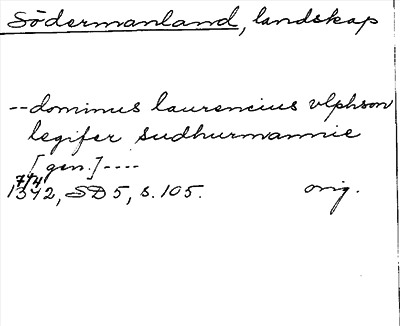 Södermanland, landskap
--dominus laurencius vlphson
legifer sudhurmannie
[gen.]----
7/4
1342, SD5, s.105. orig.